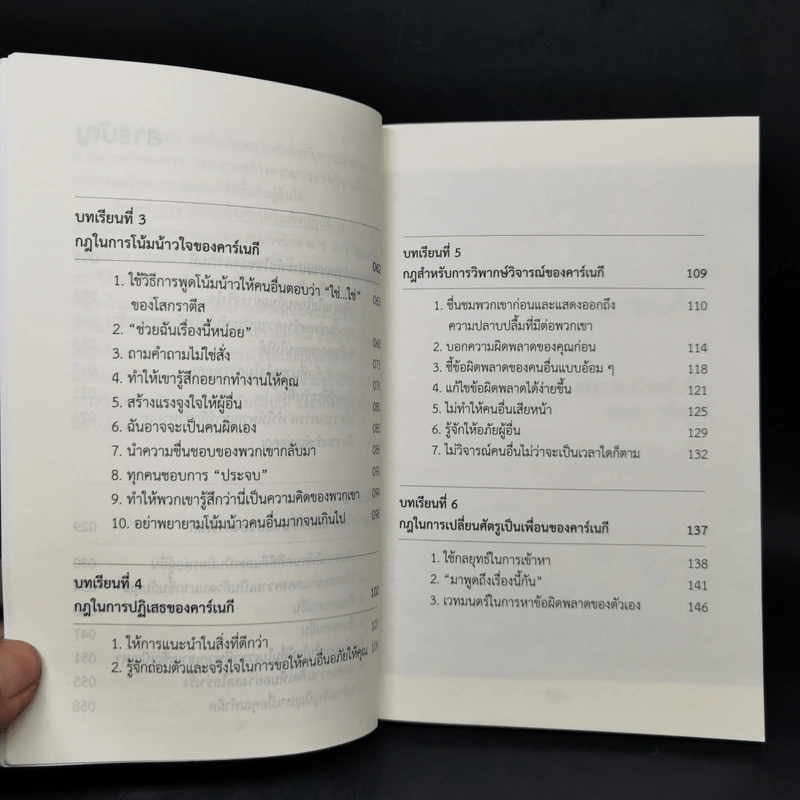 บทเรียนที่ 3
กฎในการโน้มน้าวใจของคาร์เนกี 062
1. ใช้วิธีการพูดโน้มน้าวให้คนอื่นตอบว่า “ใช่...ใช่” 063
ของโสกราตีส
2. “ช่วยฉันเรื่องนี้หน่อย” 068
3. ถามคำถามไม่ใช่สั่ง 073
4. ทำให้เขารู้สึกอยากทำงานให้คุณ 076
5. สร้างแรงจูงใจให้ผู้อื่น
6. ฉันอาจจะเป็นคนผิดเอง
7. นำความชื่นชอบของพวกเขากลับมา
8. ทุกคนชอบการ “ประจบ” 090
9. ทำให้พวกเขารู้สึกว่านี่เป็นความคิดของพวกเขา 094
10. อย่าพยายามโน้มน้าวคนอื่นมากจนเกินไป 098
บทเรียนที่ 4
กฎในการปฏิเสธของคาร์เนกี 102
1. ให้การแนะนำในสิ่งที่ดีกว่า 103
2. รู้จักถ่อมตัวและจริงใจในการขอให้คนอื่นอภัยให้คุณ 106
บทเรียนที่ 5
กฎสำหรับการวิพากษ์วิจารณ์ของคาร์เนกี 109
1. ชื่นชมพวกเขาก่อนและแสดงออกถึง 110
ความปลาบปลื้มที่มีต่อพวกเขา
2. บอกความผิดพลาดของคุณก่อน 114
3. ชี้ข้อผิดพลาดของคนอื่นแบบอ้อม ๆ 118
4. แก้ไขข้อผิดพลาดได้ง่ายขึ้น 121
5. ไม่ทำให้คนอื่นเสียหน้า 125
6. รู้จักให้อภัยผู้อื่น 129
7. ไม่วิจารณ์คนอื่นไม่ว่าจะเป็นเวลาใดก็ตาม 132
บทเรียนที่ 6
กฎในการเปลี่ยนศัตรูเป็นเพื่อนของคาร์เนกี 137
1. ใช้กลยุทธ์ในการเข้าหา 138
2. “มาพูดถึงเรื่องนี้กัน” 141
3. เวทมนตร์ในการหาข้อผิดพลาดของตัวเอง 146